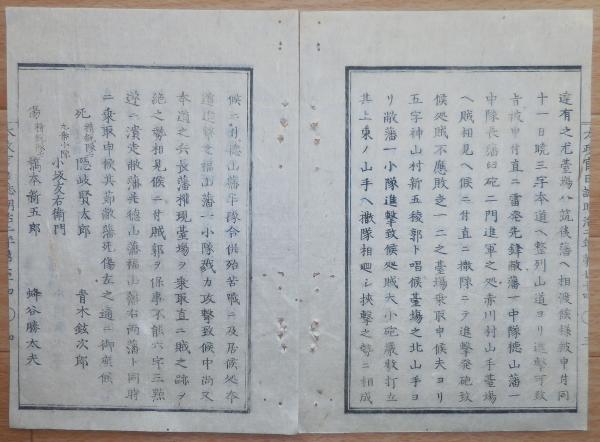 遠有之尤臺場ハ筑後藩ヘ相渡候様被申付同
十一日曉三字本道ヘ整列山道ヨリ進撃可致
旨被申付直ニ雷発先鋒敝藩一中隊徳山藩一
中隊長藩臼砲二門進軍之処赤川村山手臺場
ヘ賊相見ヘ候ニ付直ニ撒隊ニテ進撃発砲致
候処賊不應敗走一二之臺場乗取申候夫ヨリ
五字神山村新五稜郭ト唱候臺場之北山手ヨ
リ敝藩一小隊進撃致候処賊大小砲嚴敷打立
其上東ノ山手ヘ撒隊相廻シ挾撃之勢ニ相成
候ニ付徳山藩半隊令供殆苦戰ニ及居候処本
道進撃之福山藩一小隊戮力攻撃致候中尚又
本道之兵長藩權現臺場ヲ乗取直ニ賊之跡ヲ
絶之勢相見候ニ付賊郭ヲ保事不能六字三點
遂ニ潰走敝藩先徳山藩福山藩右両藩ト同時
ニ乗取申候其節敝藩死傷左之通ニ御座候
死 精鋭隊 隠岐賢太郎 青木鉉次郎
九番小隊 小坂亥右衛門
傷 精鋭隊 橋本新五郎 蜂谷勝太夫